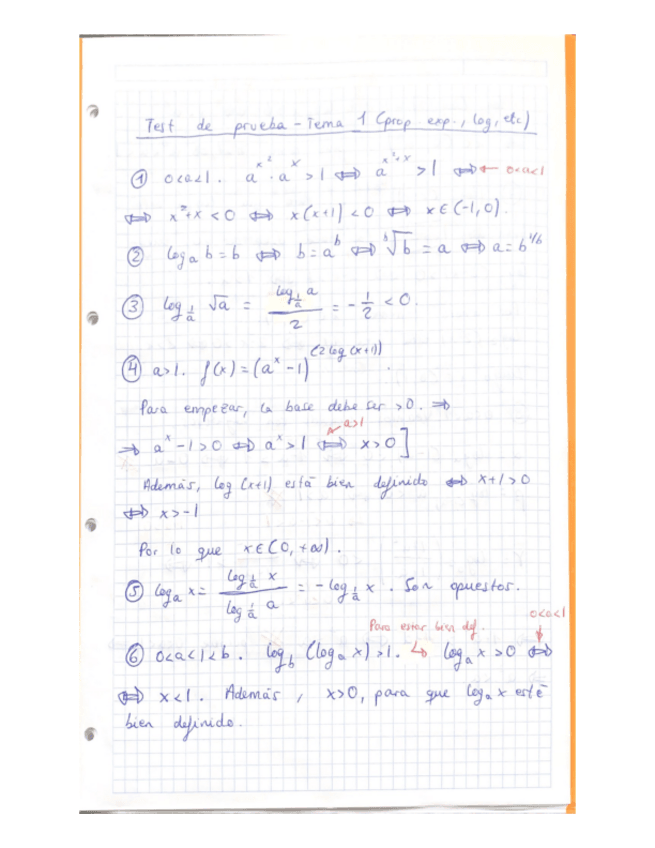 Test de prueba - Tema 1 (prop exp., log, etc)
① 0<a<1. a^{x^2} · a^x > 1 ⟺ a^{x^2+x} > 1 ⟺ ← 0<a<1
⟺ x^2+x < 0 ⟺ x(x+1) < 0 ⟺ x ∈ (-1, 0).
② log_a b = b ⟺ b = a^b ⟺ \sqrt[b]{b} = a ⟺ a = b^{1/b}
③ log_{1/a} √a = \frac{log_{1/a} a}{2} = -\frac{1}{2} < 0.
④ a>1. f(x) = (a^x - 1)^{(2 log (x+1))}.
Para empezar, la base debe ser > 0. ⇒
a>1
⇒ a^x - 1 > 0 ⟺ a^x > 1 ⟺ x > 0 ]
Además, log (x+1) está bien definido ⟺ x+1 > 0
⟺ x > -1
Por lo que x ∈ (0, +∞).
⑤ log_a x = \frac{log_{1/a} x}{log_{1/a} a} = - log_{1/a} x. Son opuestos.
Para estar bien def. 0<a<1
⑥ 0<a<1<b. log_b (log_a x) > 1. ↳ log_a x > 0 ⟺
⟺ x < 1. Además, x > 0, para que log_a x esté
bien definido.